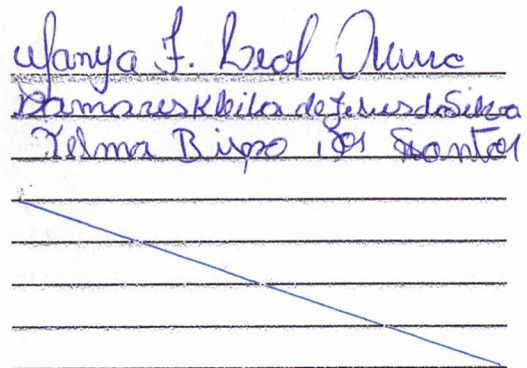 Wanya F. Leal
Damares Kleila de Jesus da Silva
Telma Bispo dos Santos